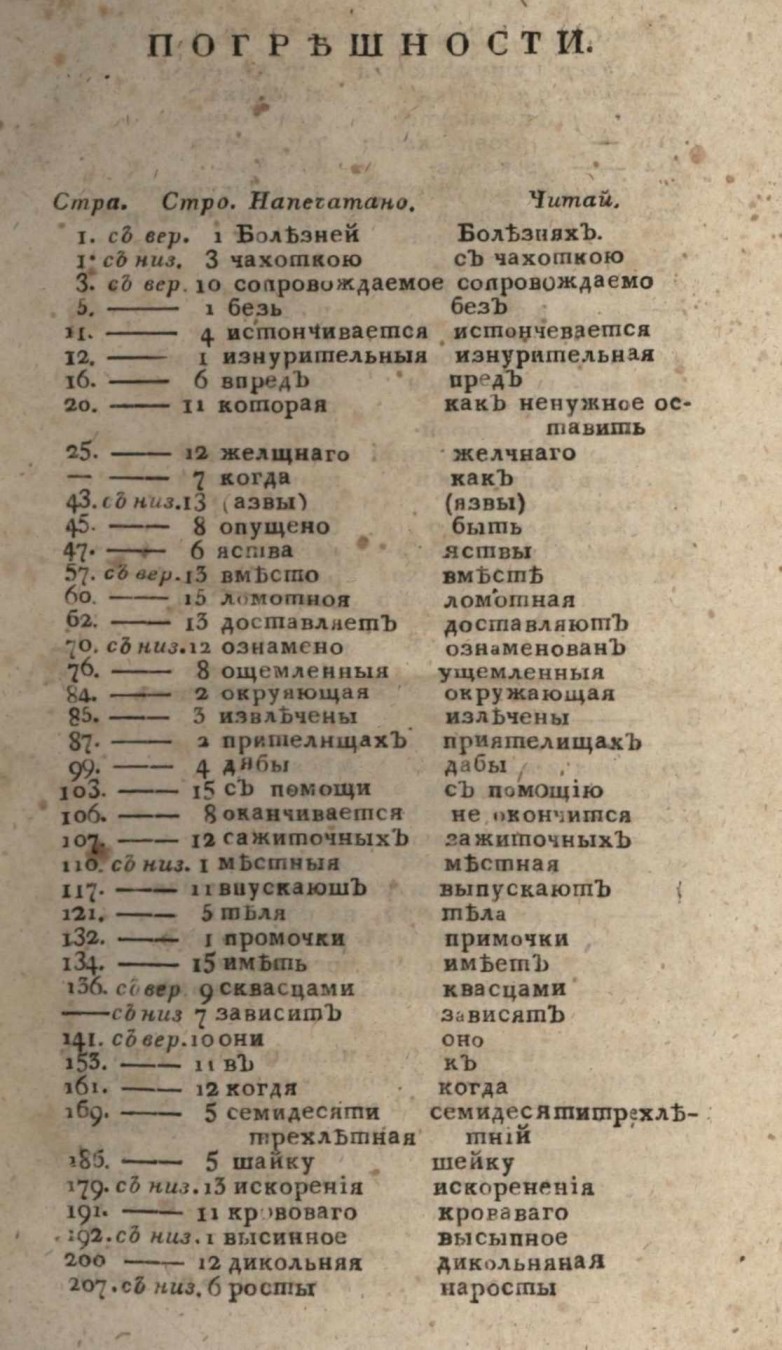 ПОГРѢШНОСТИ.
Стра. Стро. Напечатано. Читай.
1. съ вер. 1 Болѣзней Болѣзняхъ.
1. съ низ. 3 чахоткою съ чахоткою
3. съ вер. 10 сопровождаемое сопровождаемо
5. —— 1 безь безъ
11. —— 4 истончивается истончевается
12. —— 1 изнурительныя изнурительная
16. —— 6 впредъ предъ
20. —— 11 которая какъ ненужное ос-
тавить
25. —— 12 желщнаго желчнаго
— —— 7 когда какъ
43. съ низ. 13 (азвы) (язвы)
45. —— 8 опущено быть
47. —— 6 яства яствы
57. съ вер. 13 вмѣсто вмѣстѣ
60. —— 15 ломотноя ломотная
62. —— 13 доставляетъ доставляютъ
70. съ низ. 12 ознамено ознаменованъ
76. —— 8 ощемленныя ущемленныя
84. —— 2 окруяющая окружающая
85. —— 3 извлѣчены излѣчены
87. —— 2 прителнщахъ приятелищахъ
99. —— 4 дябы дабы
103. —— 15 съ помощи съ помощію
106. —— 8 оканчивается не окончится
107. —— 12 сажиточныхъ зажиточныхъ
110. съ низ. 1 мѣстныя мѣстная
117. —— 11 впускаюшъ выпускаютъ
121. —— 5 тѣля тѣла
132. —— 1 промочки примочки
134. —— 15 имѣть имѣетъ
136. съ вер 9 сквасцами квасцами
—— съ низ 7 зависитъ зависятъ
141. съ вер. 10 они оно
153. —— 11 въ къ
161. —— 12 когдя когда
169. —— 5 семидесяти семидесятитрехлѣ-
трехлѣтная тній
185. —— 5 шайку шейку
179. съ низ. 13 искоренія искорененія
191. —— 11 крововаго кроваваго
192. съ низ. 1 высинное высыпное
200 —— 12 дикольняя дикольняная
207. съ низ. 6 росты наросты